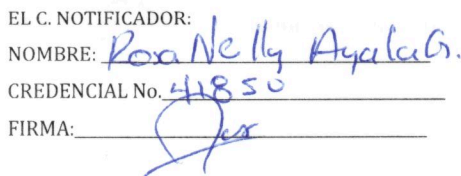 EL C. NOTIFICADOR:
NOMBRE: Rosa Nelly Ayala G.
CREDENCIAL No. 41850
FIRMA: